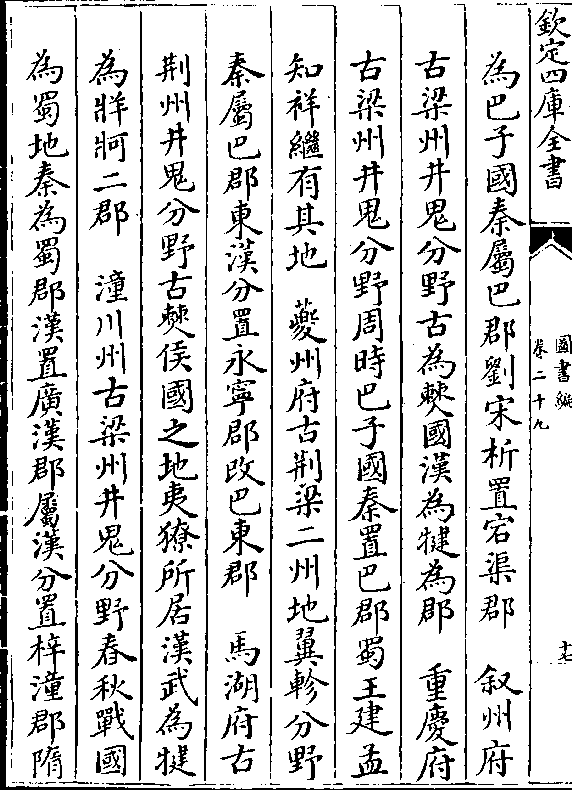 欽定四庫全書
圖書編
卷二十九
十七
為巴子國秦屬巴郡劉宋析置宕渠郡　叙州府
古梁州井鬼分野古為僰國漢為犍為郡　重慶府
古梁州井鬼分野周時巴子國秦置巴郡蜀王建孟
知祥繼有其地　夔州府古荆梁二州地翼軫分野
秦屬巴郡東漢分置永寧郡改巴東郡　馬湖府古
荆州井鬼分野古僰侯國之地夷獠所居漢武為犍
為牂牁二郡　潼川州古梁州井鬼分野春秋戰國
為蜀地秦為蜀郡漢置廣漢郡屬漢分置梓潼郡隋